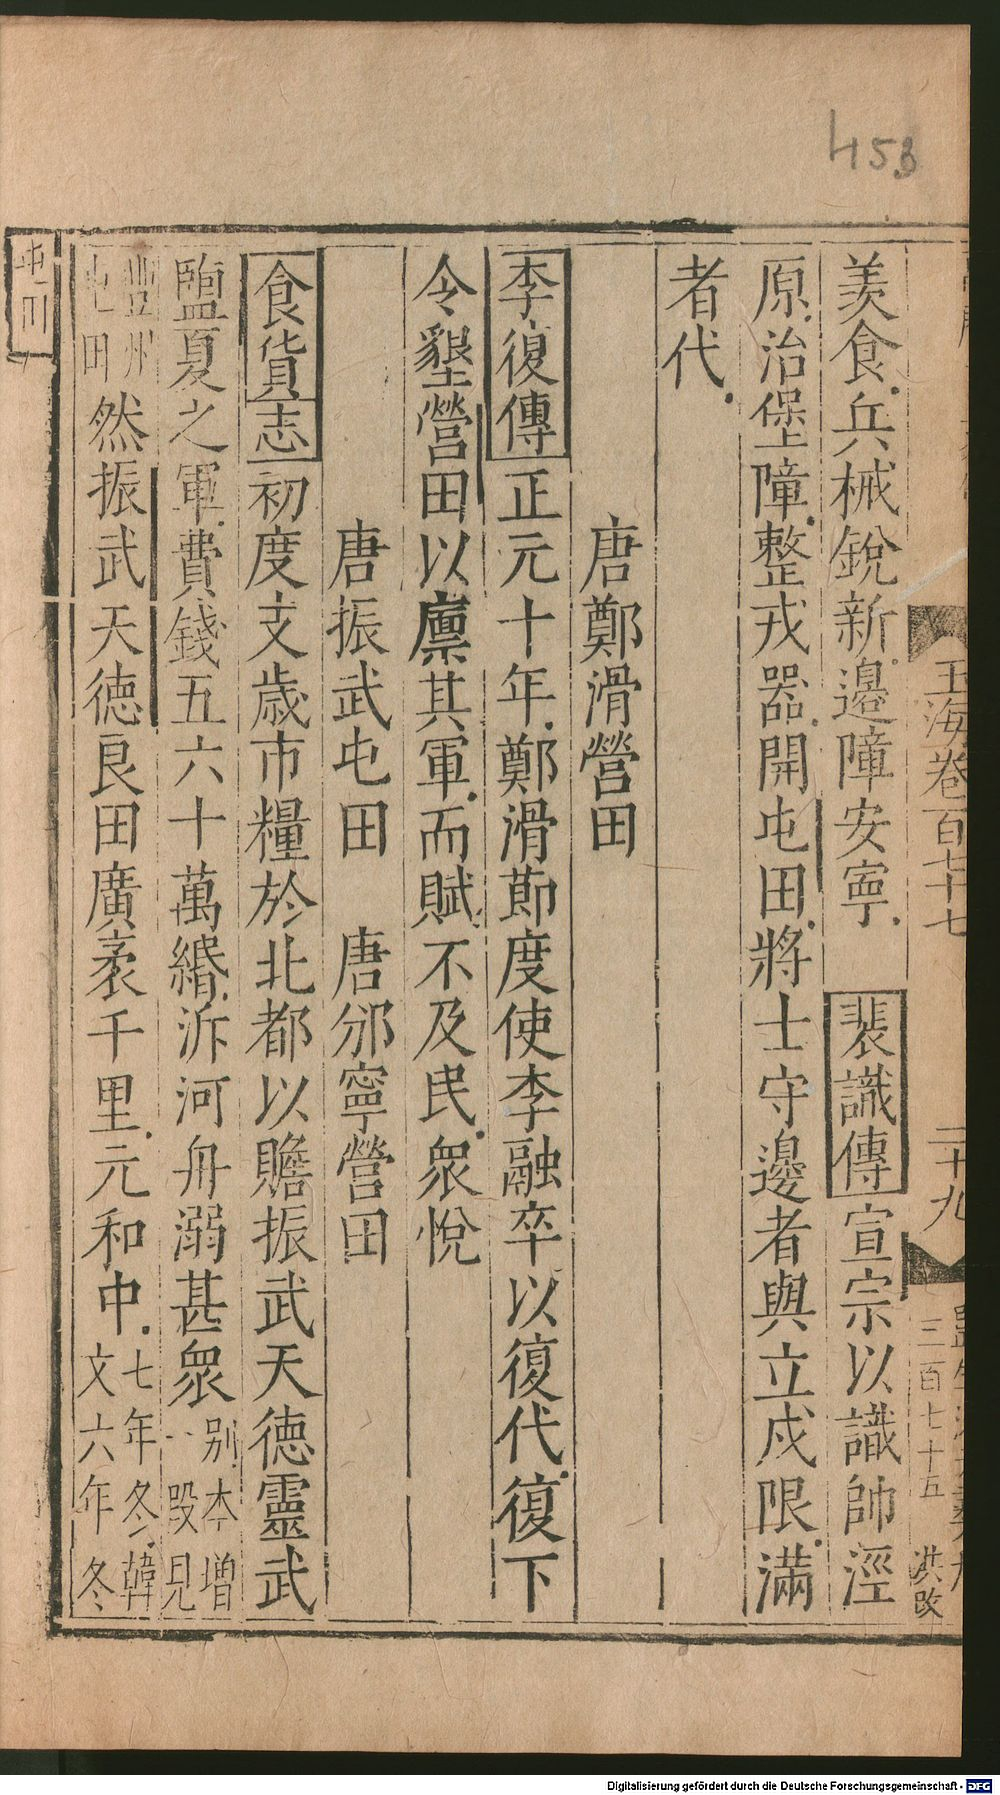 453
玉海卷百七十七
二十九
三百七十五
洪改
羡食兵械銳新邊障安寧　裴識傳宣宗以識帥涇
原治堡障整戎器開屯田將士守邊者與立戍限滿
者代
唐鄭滑營田
李復傳正元十年鄭滑節度使李融卒以復代復下
令墾營田以廪其軍而賦不及民衆悅
唐振武屯田　唐邠寧營田
食貨志初度支歲市糧於北都以贍振武天德靈武
鹽夏之軍費錢五六十萬緡泝河舟溺甚衆別本增一段見
豐州屯田然振武天德良田廣袤千里元和中七年冬韓文六年冬
屯田
Digitalisierung gefördert durch die Deutsche Forschungsgemeinschaft - DFG